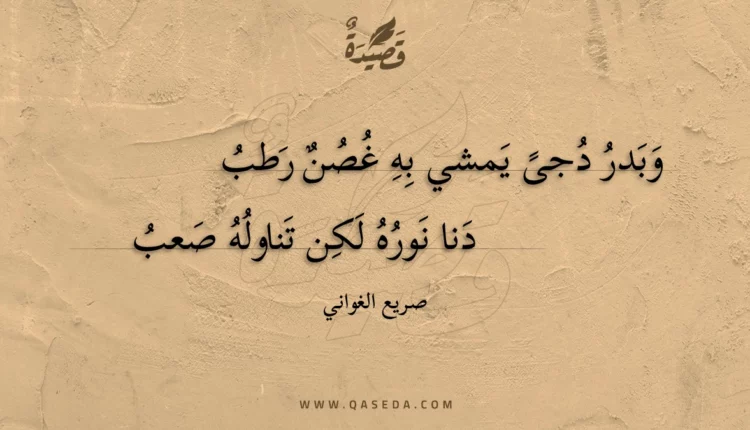 قَصِيدَةٌ
وَبَدرُ دُجىً يَمشي بِهِ غُصُنٌ رَطبُ
دَنا نَورُهُ لَكِن تَناولُهُ صَعبُ
صريع الغواني
WWW.QASEDA.COM